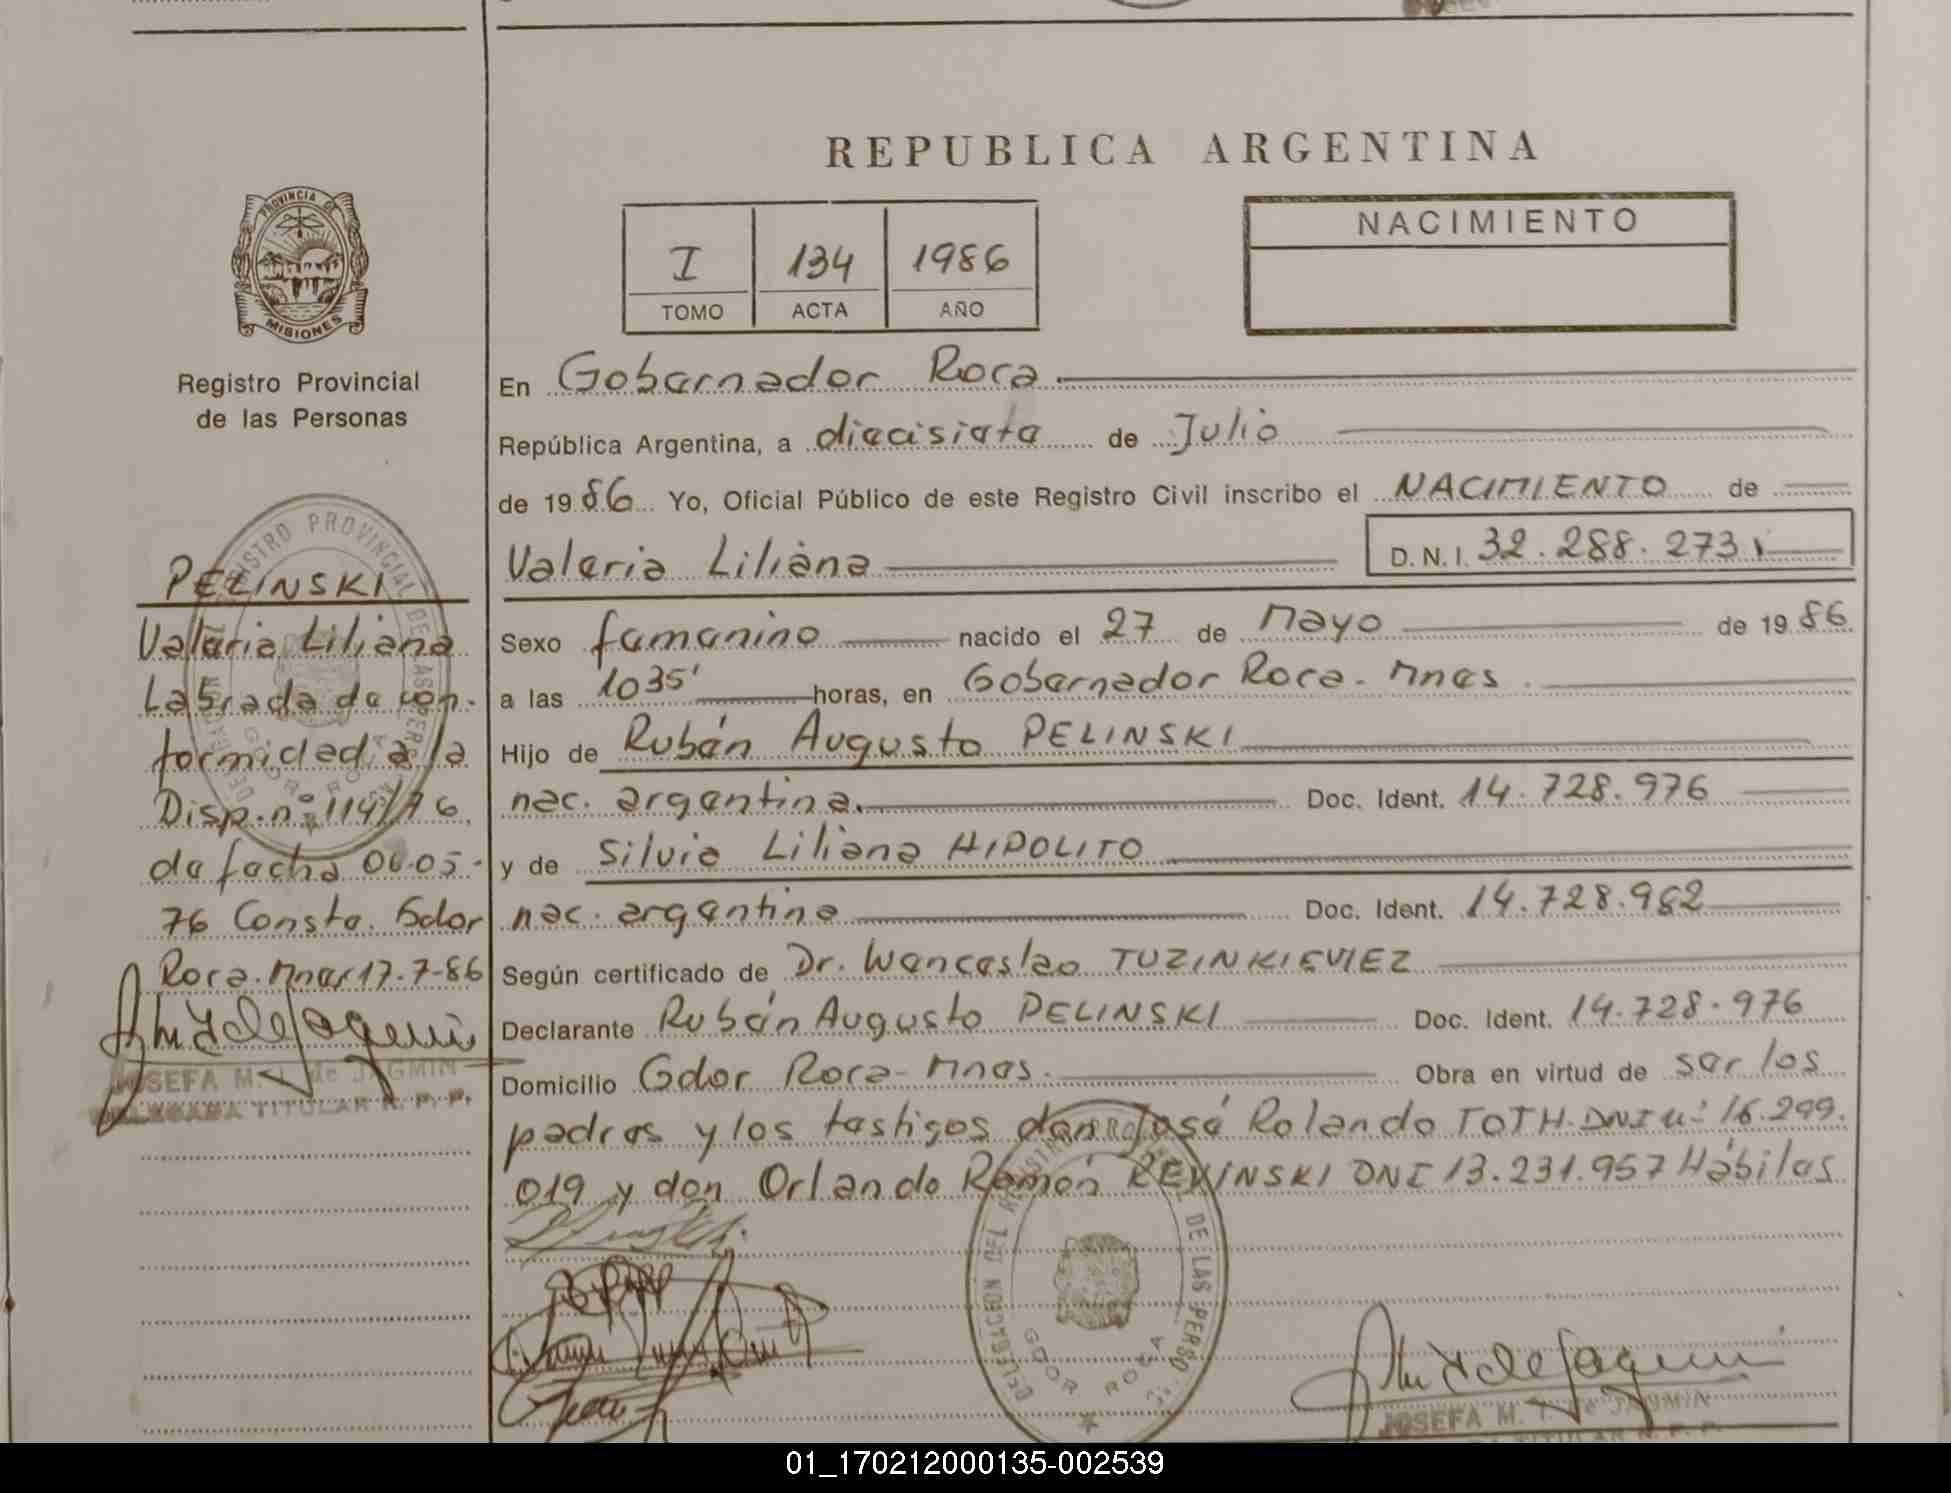 REPUBLICA ARGENTINA
PROVINCIA DE
MISIONES
Registro Provincial
de las Personas
I 134 1986
TOMO ACTA AÑO
NACIMIENTO
En Gobernador Roca
República Argentina, a diecisiete de Julio
de 1986 Yo, Oficial Público de este Registro Civil inscribo el NACIMIENTO de
Valeria Liliana D.N.I. 32.288.273
Sexo femenino nacido el 27 de Mayo de 1986
a las 1035' horas, en Gobernador Roca. Mnes.
Hijo de Rubén Augusto PELINSKI
nac. argentina. Doc. Ident. 14.728.976
y de Silvia Liliana HIPOLITO
nac. argentina Doc. Ident. 14.728.962
Según certificado de Dr. Wenceslao TUZINKIEVIEZ
Declarante Rubén Augusto PELINSKI Doc. Ident. 14.728.976
Domicilio Gdor Roca-Mnes. Obra en virtud de ser los
padres y los testigos don José Rolando TOTH. DNI nº 16.299.
019 y don Orlando Ramón REVINSKI DNI 13.231.957 Hábiles
PELINSKI
Valeria Liliana
Labrada de con-
formidad a la
Disp. nº 114/76.
de fecha 06-05-
76 Conste. Gdor
Roca. Mnes 17-7-86
JOSEFA M. T. de JAGMIN
DELEGADA TITULAR R. P. P.
REGISTRO PROVINCIAL DE LAS PERSO
GDOR ROCA
DELEGACION DEL REGISTRO DE LAS PERSO
GDOR ROCA
JOSEFA M. T. de JAGMIN
TITULAR R. P. P.
01_170212000135-002539